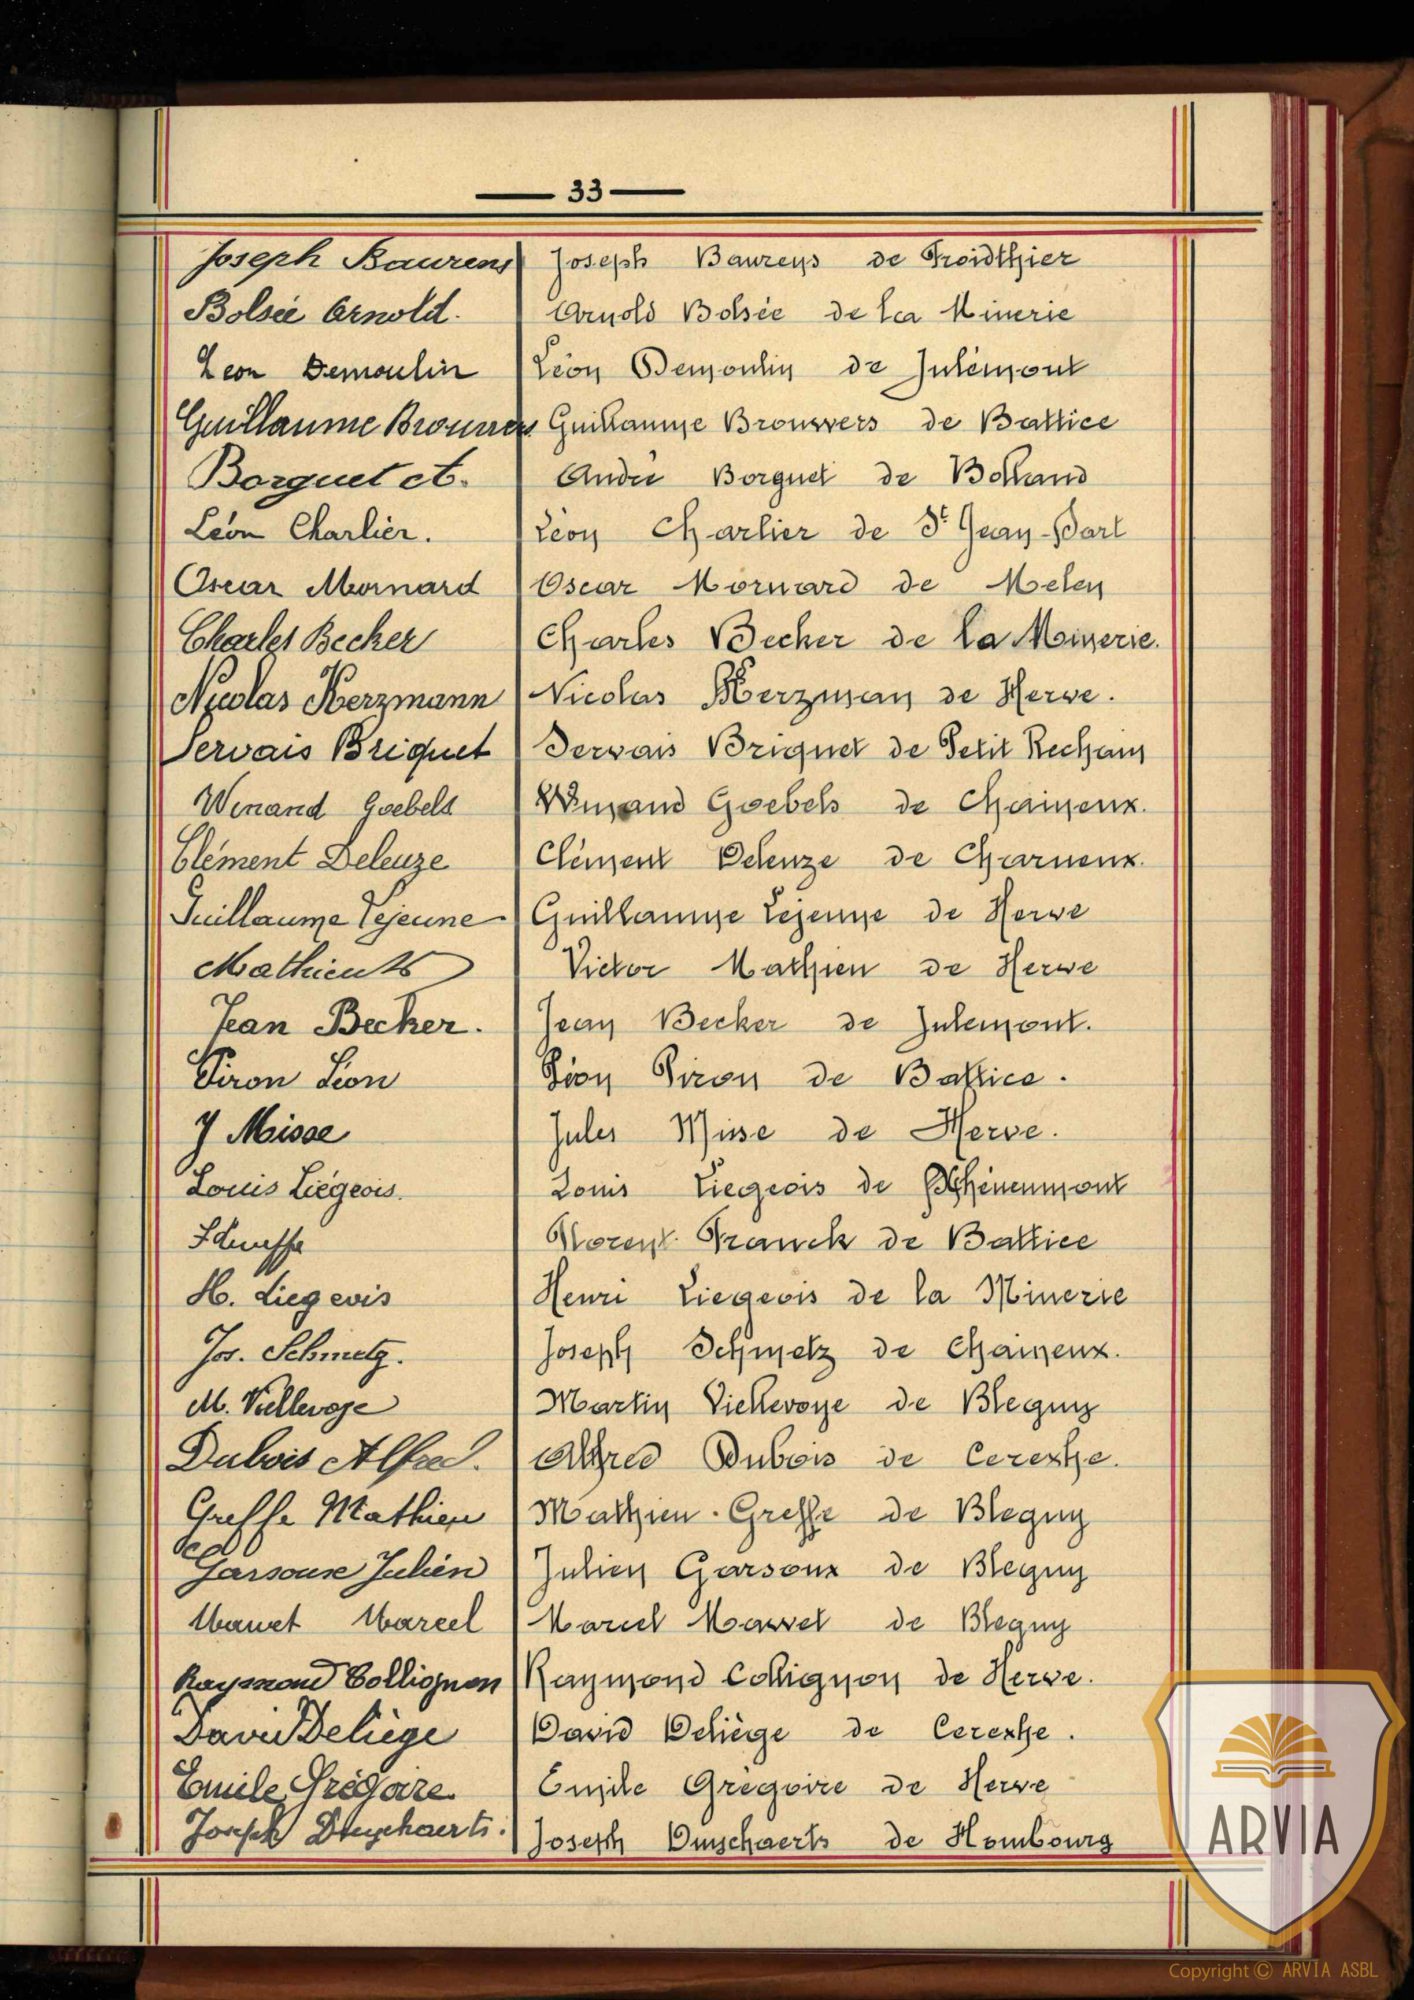 — 33 —
Joseph Baurens Joseph Baureys de Froidthier
Bolsée Arnold. Arnold Bolsée de la Minerie
Leon Demoulin Léon Demoulin de Julémont
Guillaume Brouwers Guillaume Brouwers de Battice
Borguet A. André Borguet de Bolland
Léon Charlier. Léon Charlier de St Jean-Sart
Oscar Mornard Oscar Mornard de Melen
Charles Becker Charles Becker de la Minerie.
Nicolas Kerzmann Nicolas Kerzman de Herve.
Servais Briquet Servais Briquet de Petit Rechain
Winand Goebels Winand Goebels de Chaineux.
Clément Deleuze Clément Deleuze de Charneux.
Guillaume Lejeune Guillaume Lejeune de Herve
Mathieu Victor Mathieu de Herve
Jean Becker. Jean Becker de Julemont.
Piron Léon Léon Piron de Battice.
J Misse Jules Misse de Herve.
Louis Liégeois. Louis Liegeois de Xhéneumont
Florent Franck de Battice
H. Liegeois Henri Liegeois de la Minerie
Jos. Schmetz. Joseph Schmetz de Chaineux.
M. Viellevoye Martin Viellevoye de Blegny
Dubois Alfred. Alfred Dubois de Cerexhe.
Greffe Mathieu Mathieu Greffe de Blegny
Garsoux Julien Julien Garsoux de Blegny
Mawet Marcel Marcel Mawet de Blegny
Raymond Collignon Raymond Collignon de Herve.
David Deliège David Deliège de Cerexhe.
Emile Grégoire. Emile Grégoire de Herve
Joseph Duyschaerts. Joseph Duyschaerts de Hombourg
ARVIA
Copyright © ARVIA ASBL